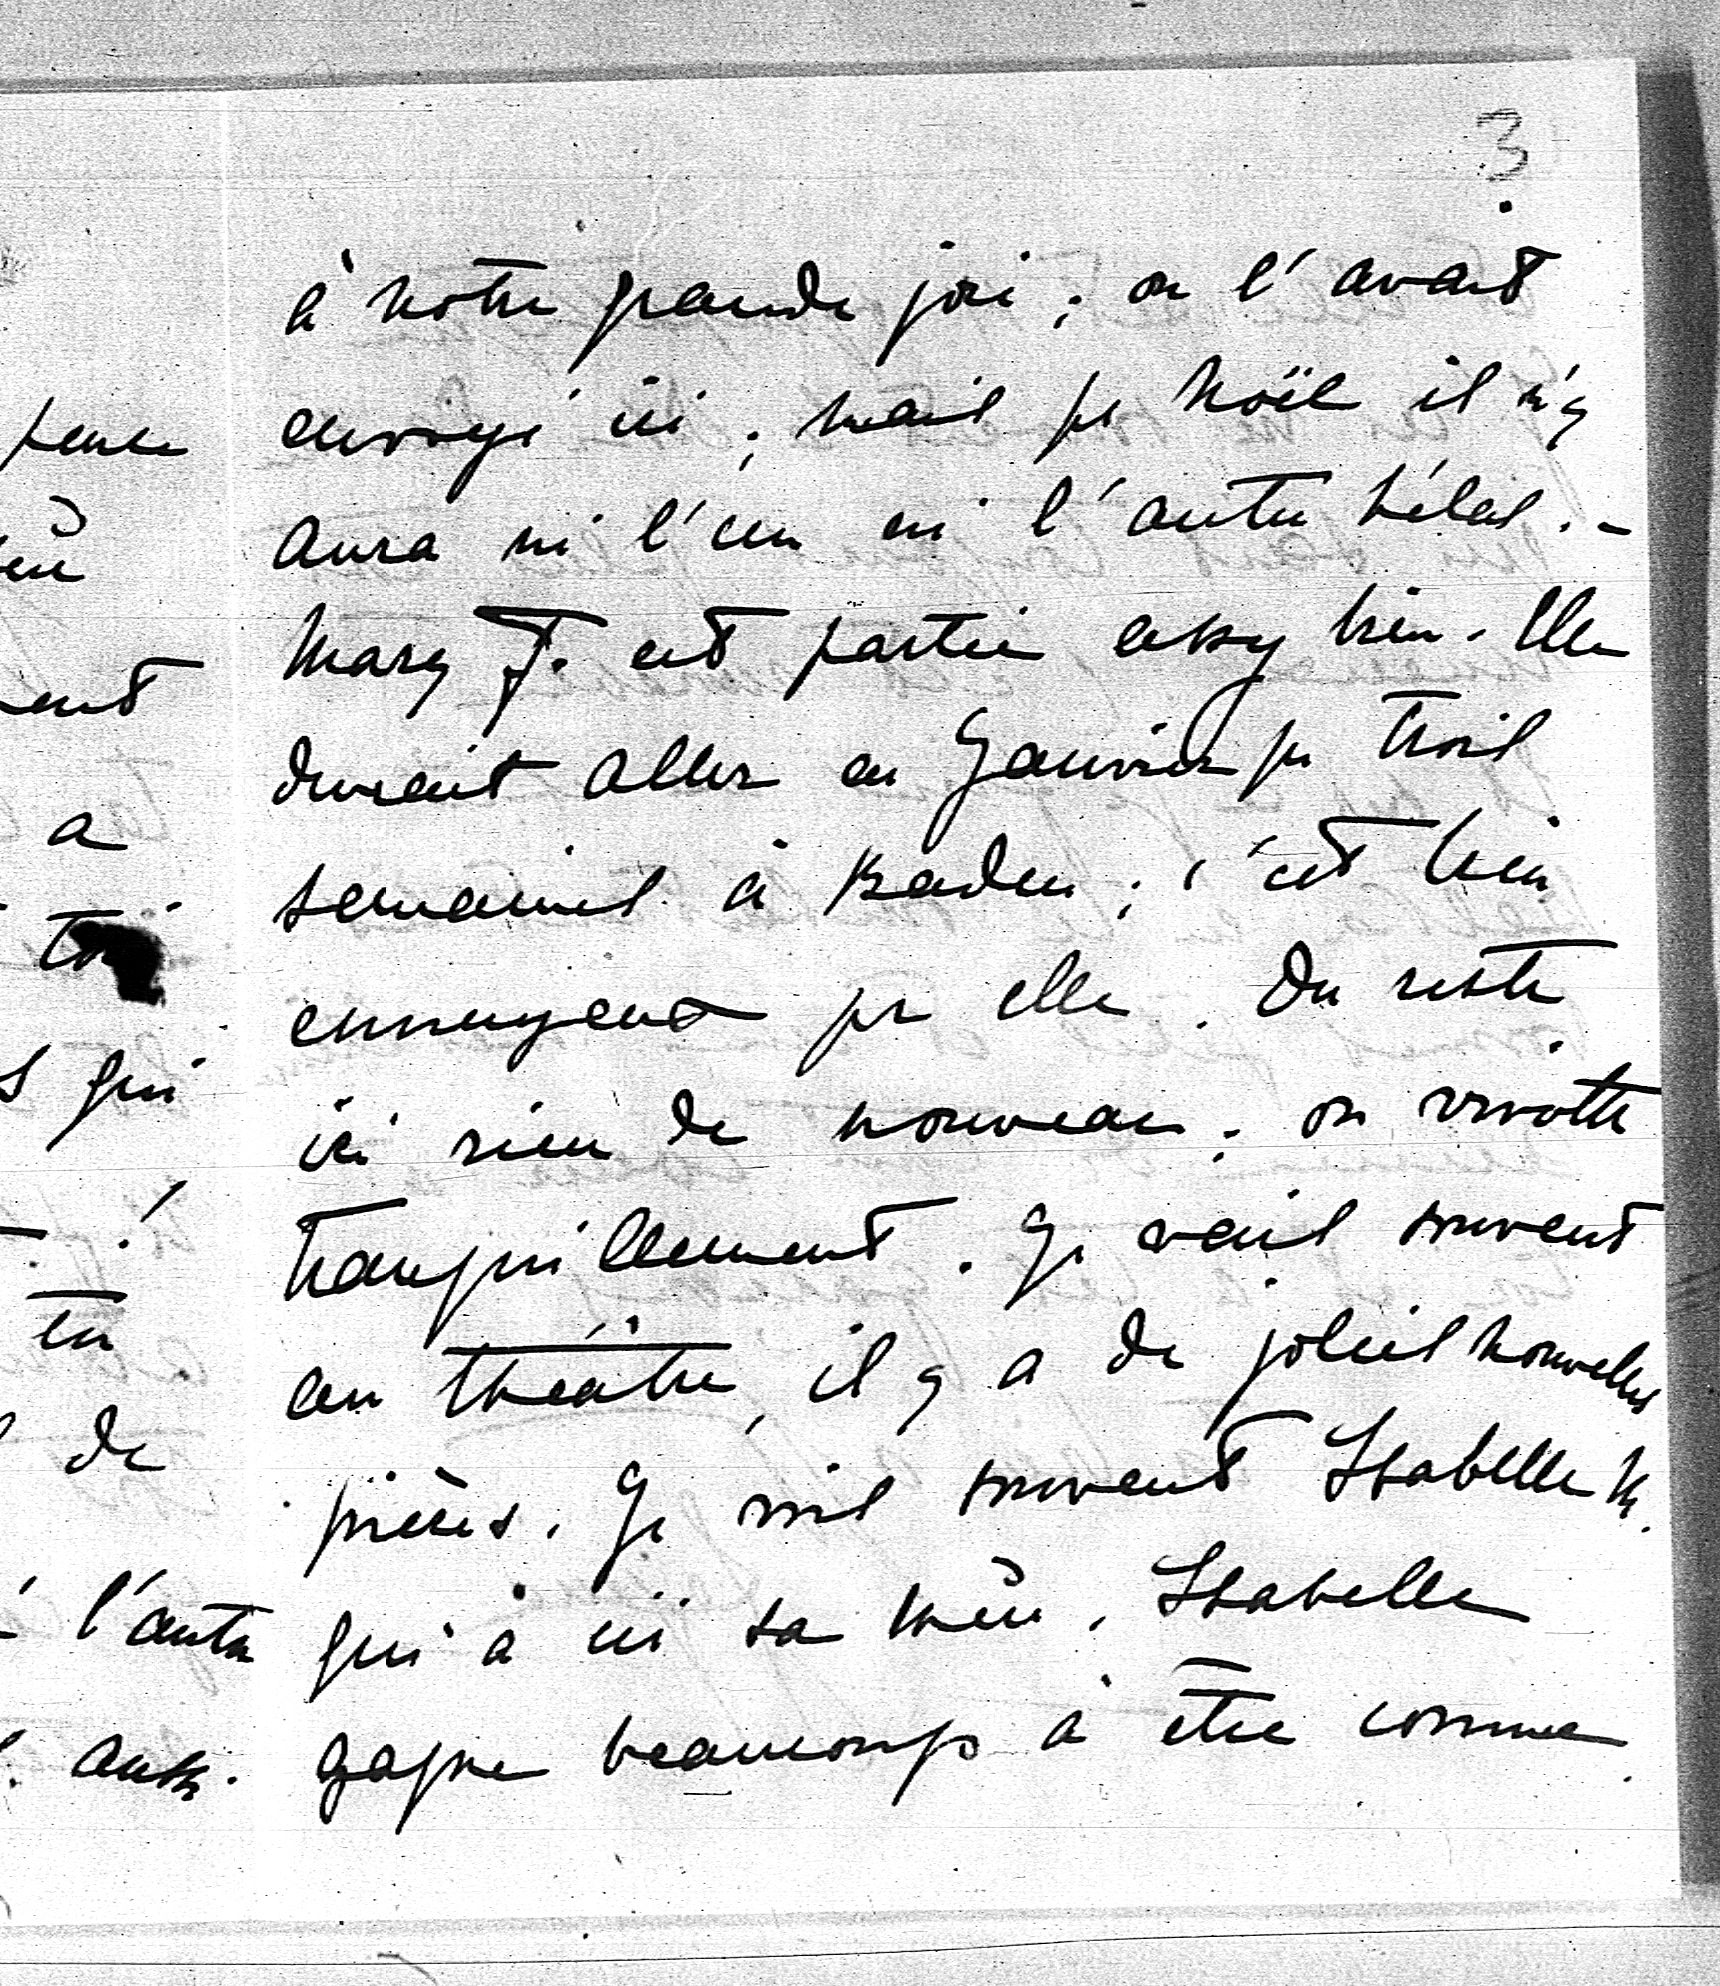 3
à notre grande joie ; on l'avait
envoyé ici ; mais pr Noël il n'y
aura ni l'un ni l'autre hélas. -
Mary F. est partie assez bien. Elle
devrait aller en Janvier pr trois
semaines à Baden ; c'est bien
ennuyeux pr elle. Du reste
ici rien de nouveau ; on vivotte
tranquillement. Je vais souvent
au théâtre, il y a de jolies nouvelles
pièces. Je vois souvent Isabelle K.
qui a ici sa mère. Isabelle
gagne beaucoup à être connue
pense
ent
a
toi
s qui
!
en
de
l'autre
aussi.